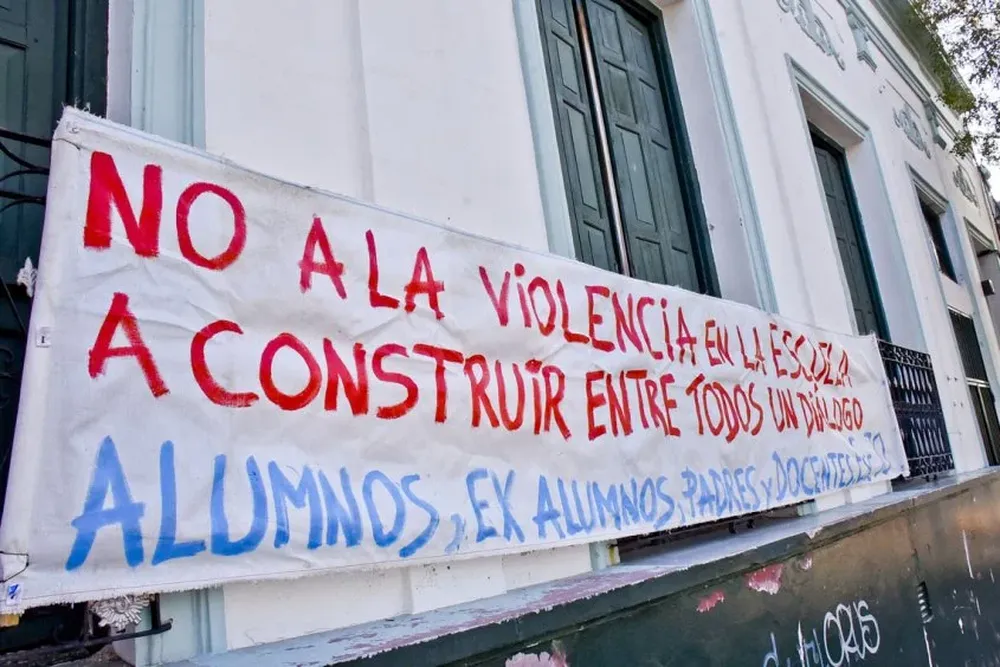 NO A LA VIOLENCIA EN LA ESCUELA
A CONSTRUIR ENTRE TODOS UN DIÁLOGO
ALUMNOS, EX ALUMNOS, PADRES y DOCENTES